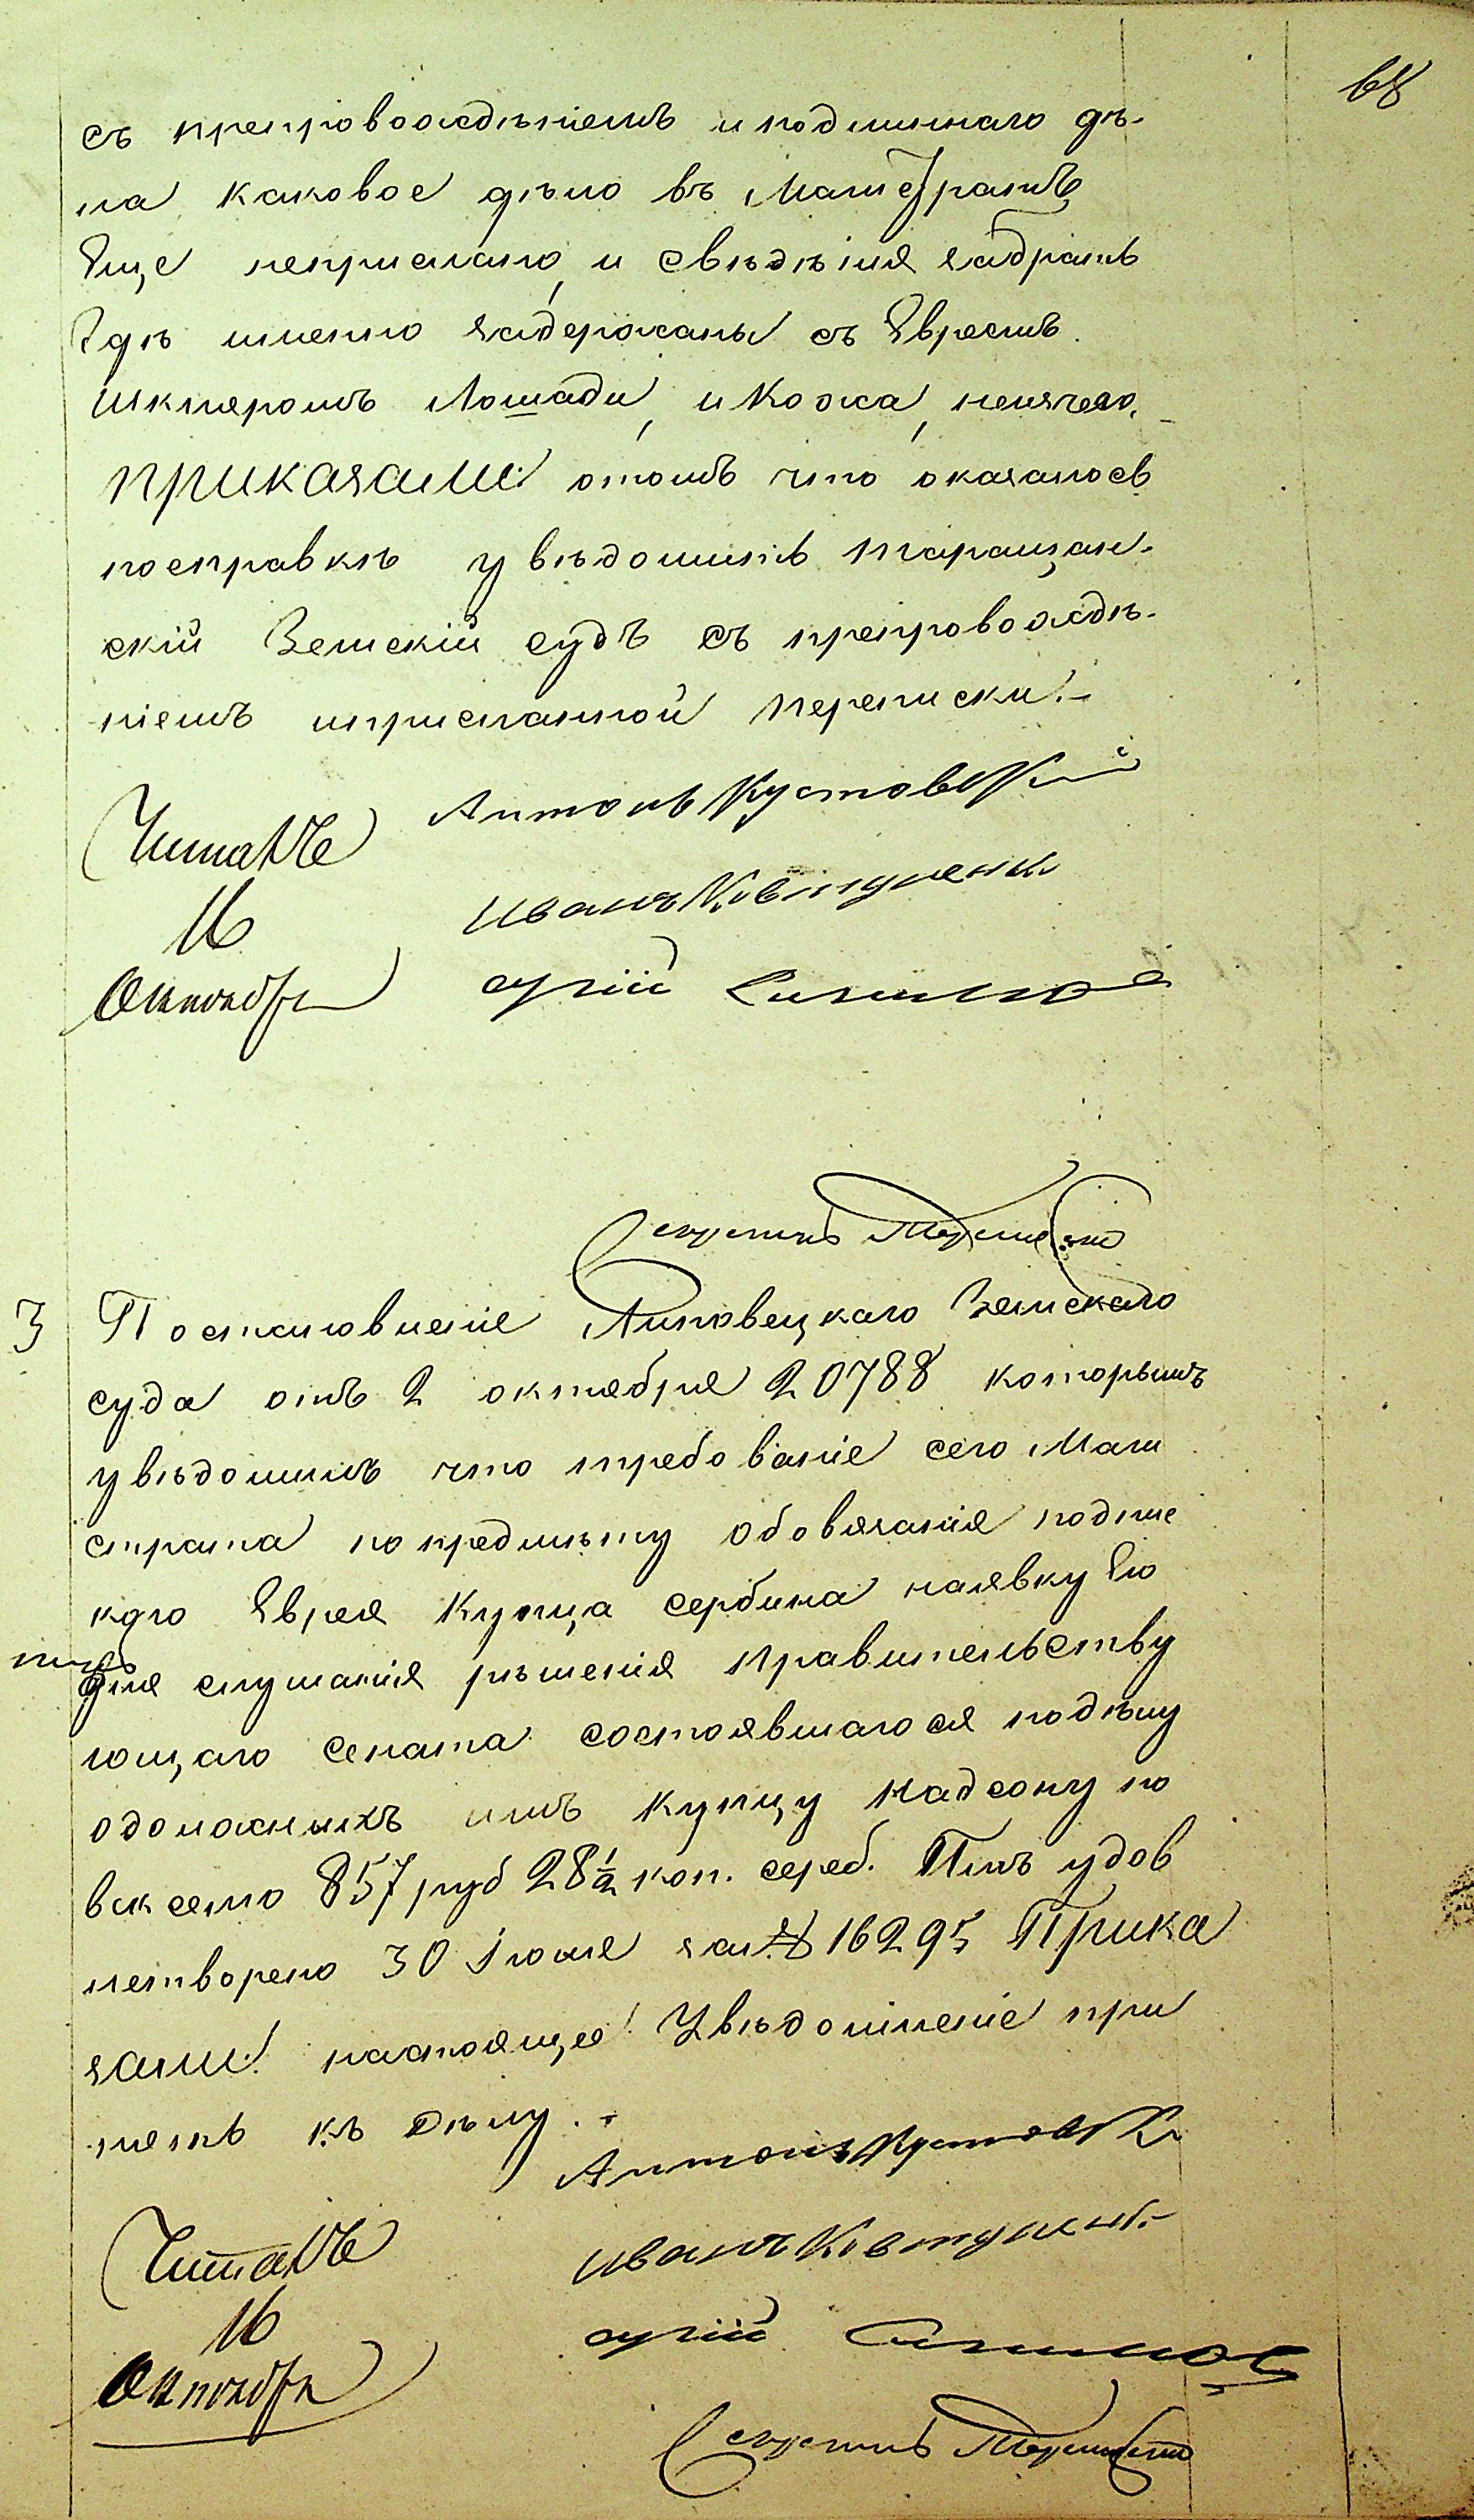 68
съ препровожденіемъ и подлиннаго дѣ-
ла каковое дѣло въ Магистратъ
Еще неприслано, и свѣдѣнія забрать
Гдѣ именно задержаны съ Евреемъ
Шкляромъ Лошади, и Кожа, неизчего,
приказали: отомъ что оказалось
посправкѣ увѣдомить Таращан-
скій Земскій судъ съ препровожде-
ніемъ иприсланной переписки.-
Антонъ Кустовскій
Читалъ
Иванъ Ковтуненко
16
Октября
Секретарь
3 Постановленіе Липовецкаго Земскаго
суда отъ 2 октября 20788 которымъ
увѣдомилъ что требованіе сего Маги
страта попредмѣту обовязанія подпис
кдю Еврея Купца Сербина наявку Его
для слушанія рѣшенія Правительству
ющаго сената состоявшагося подѣлу
одолжныхъ имъ купцу Надсону по
векселю 857 руб 28½ коп. сереб. Имъ удов
летворено 30 Іюля за № 16295 Прика
зали: настоящее Увѣдомленіе при
нять къ дѣлу.-
Антонъ Кустовскі
Читалъ
Иванъ Ковтуненк
16
Октября
Секретарь